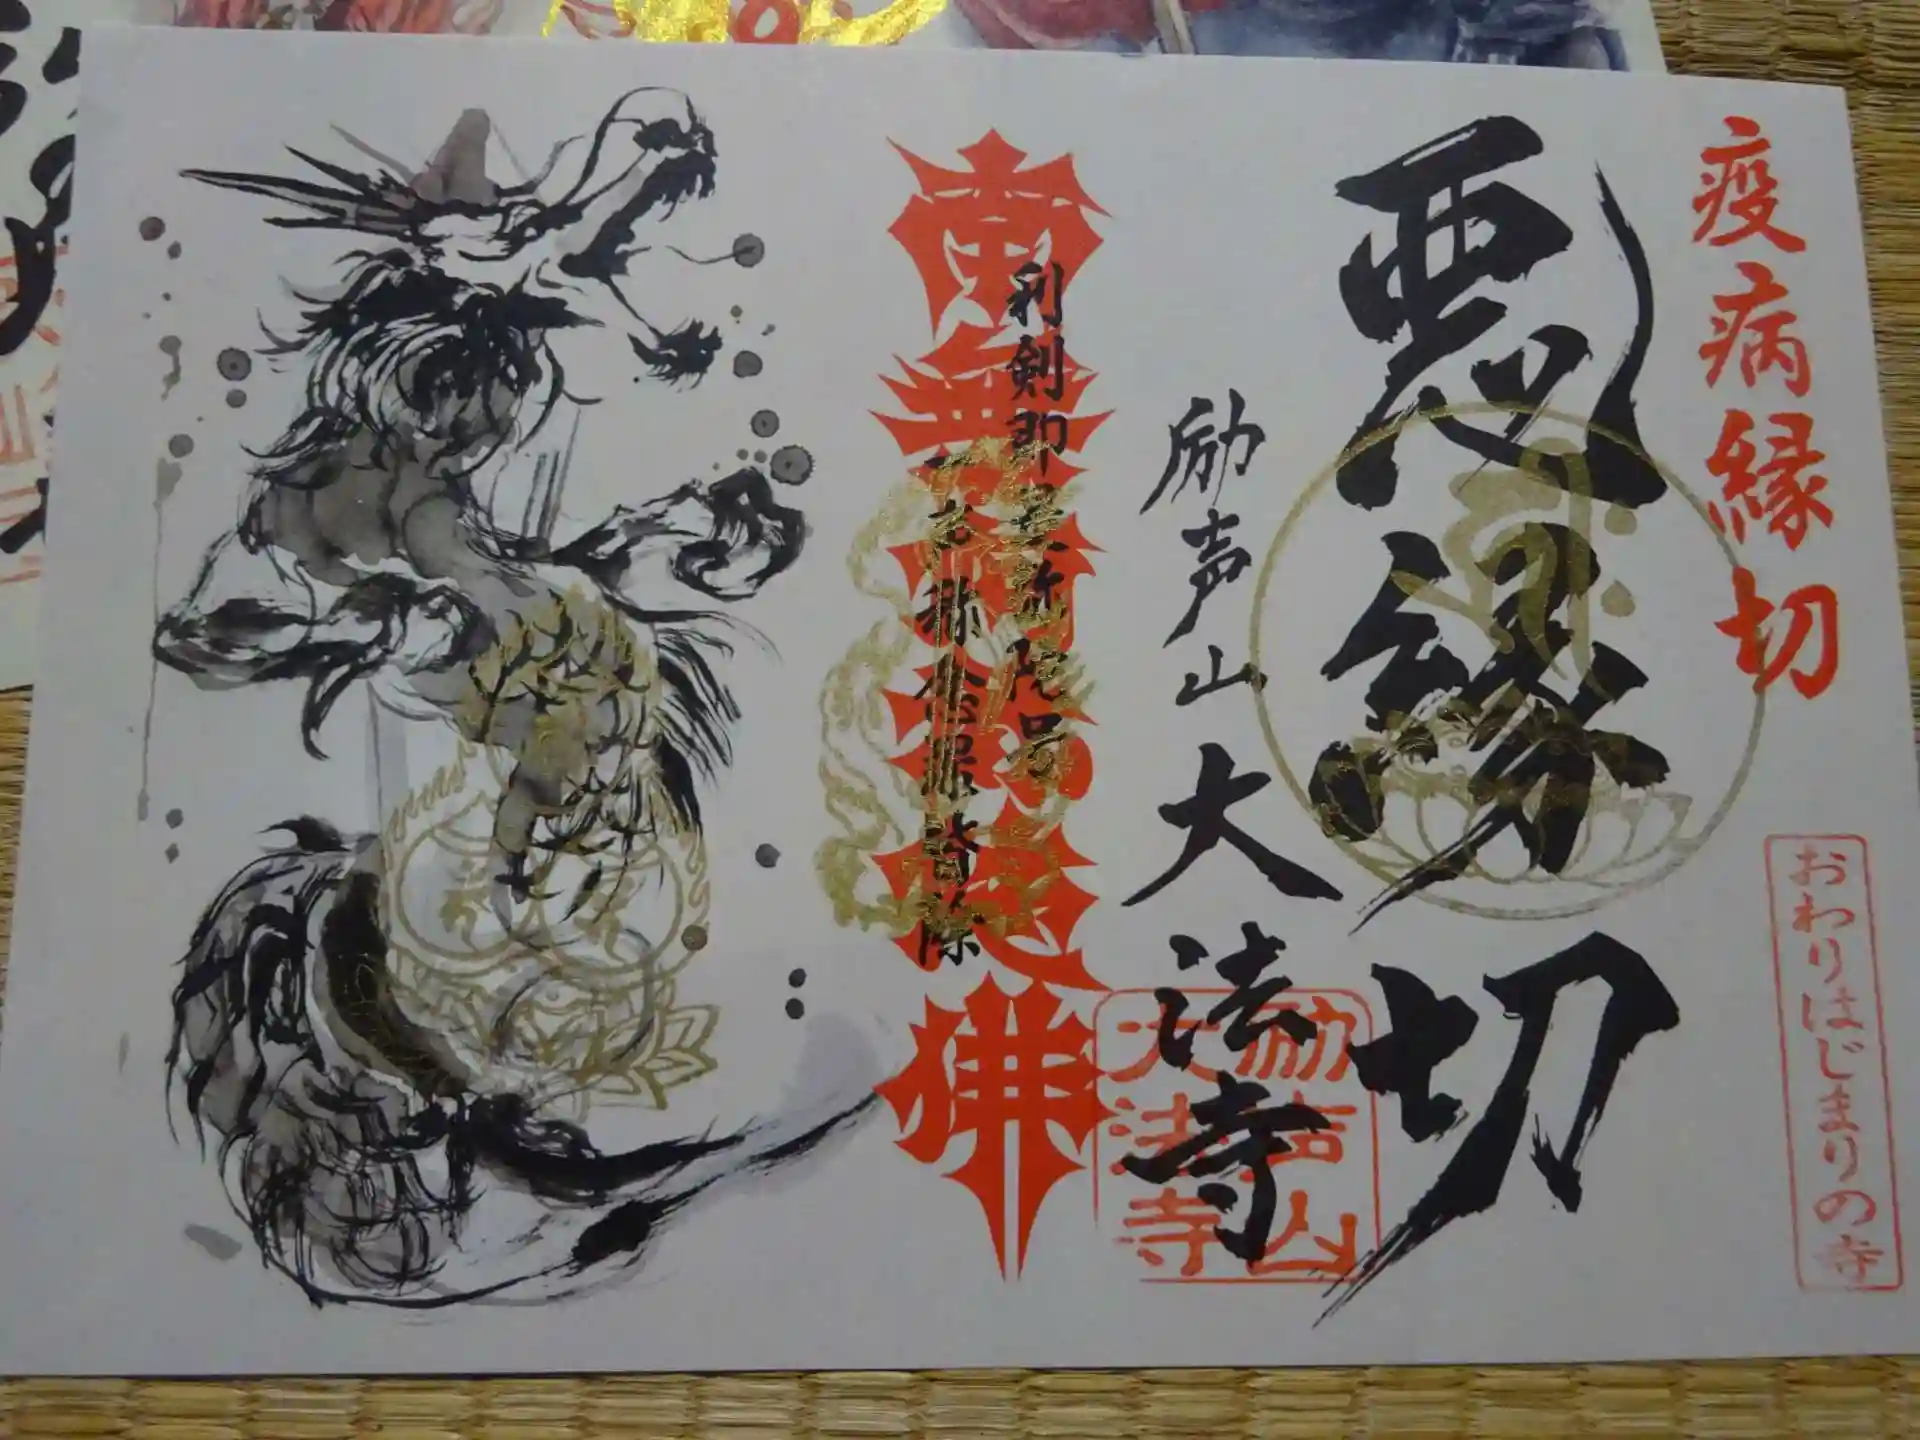 疫病縁切
おわりはじまりの寺
悪縁切
励声山大法寺
励声山
大法寺
利剣即是弥陀号
一声称念罪皆除
南無阿弥陀佛